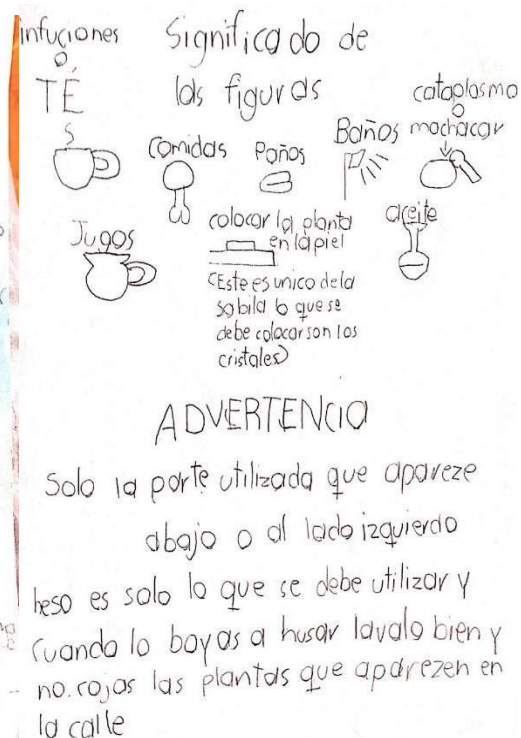 infuciones
o
TÉ
Significado de
las figuras
cataplasmo
o
machacar
Comidas
Paños
Baños
Jugos
colocar la planta
en la piel
(Este es unico de la
sabila lo que se
debe colocar son los
cristales)
aceite
ADVERTENCIA
Solo la parte utilizada que apareze
abajo o al lado izquierdo
heso es solo lo que se debe utilizar y
cuando lo bayas a husar lavalo bien y
no cojas las plantas que aparezen en
la calle